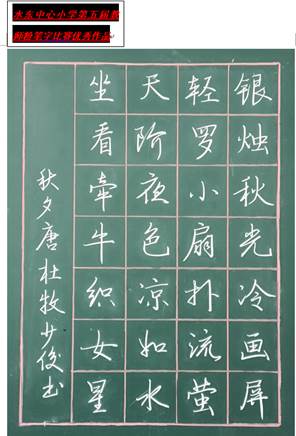 水东中心小学第五届教
师粉笔字比赛优秀作品
银烛秋光冷画屏
轻罗小扇扑流萤
天阶夜色凉如水
坐看牵牛织女星
秋夕唐杜牧少俊书